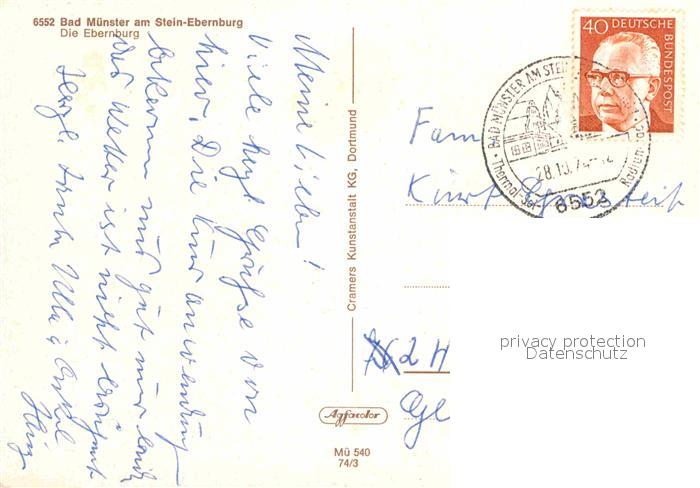 6552 Bad Münster am Stein-Ebernburg
Die Ebernburg
Meine Lieben!
Viele herzl. Grüße von
hier. Die Kuranwendung
bekommen mir gut nur leider
das Wetter ist nicht berühmt
Herzl. Tante Ulla & Onkel
Cramers Kunstanstalt KG, Dortmund
Agfacolor
Mü 540
74/3
40 DEUTSCHE BUNDESPOST
BAD MÜNSTER AM STEIN
Thermal-Sol-
Radium-
28.10.74-12
6552
Fam
Kurt
privacy protection
Datenschutz
2 H